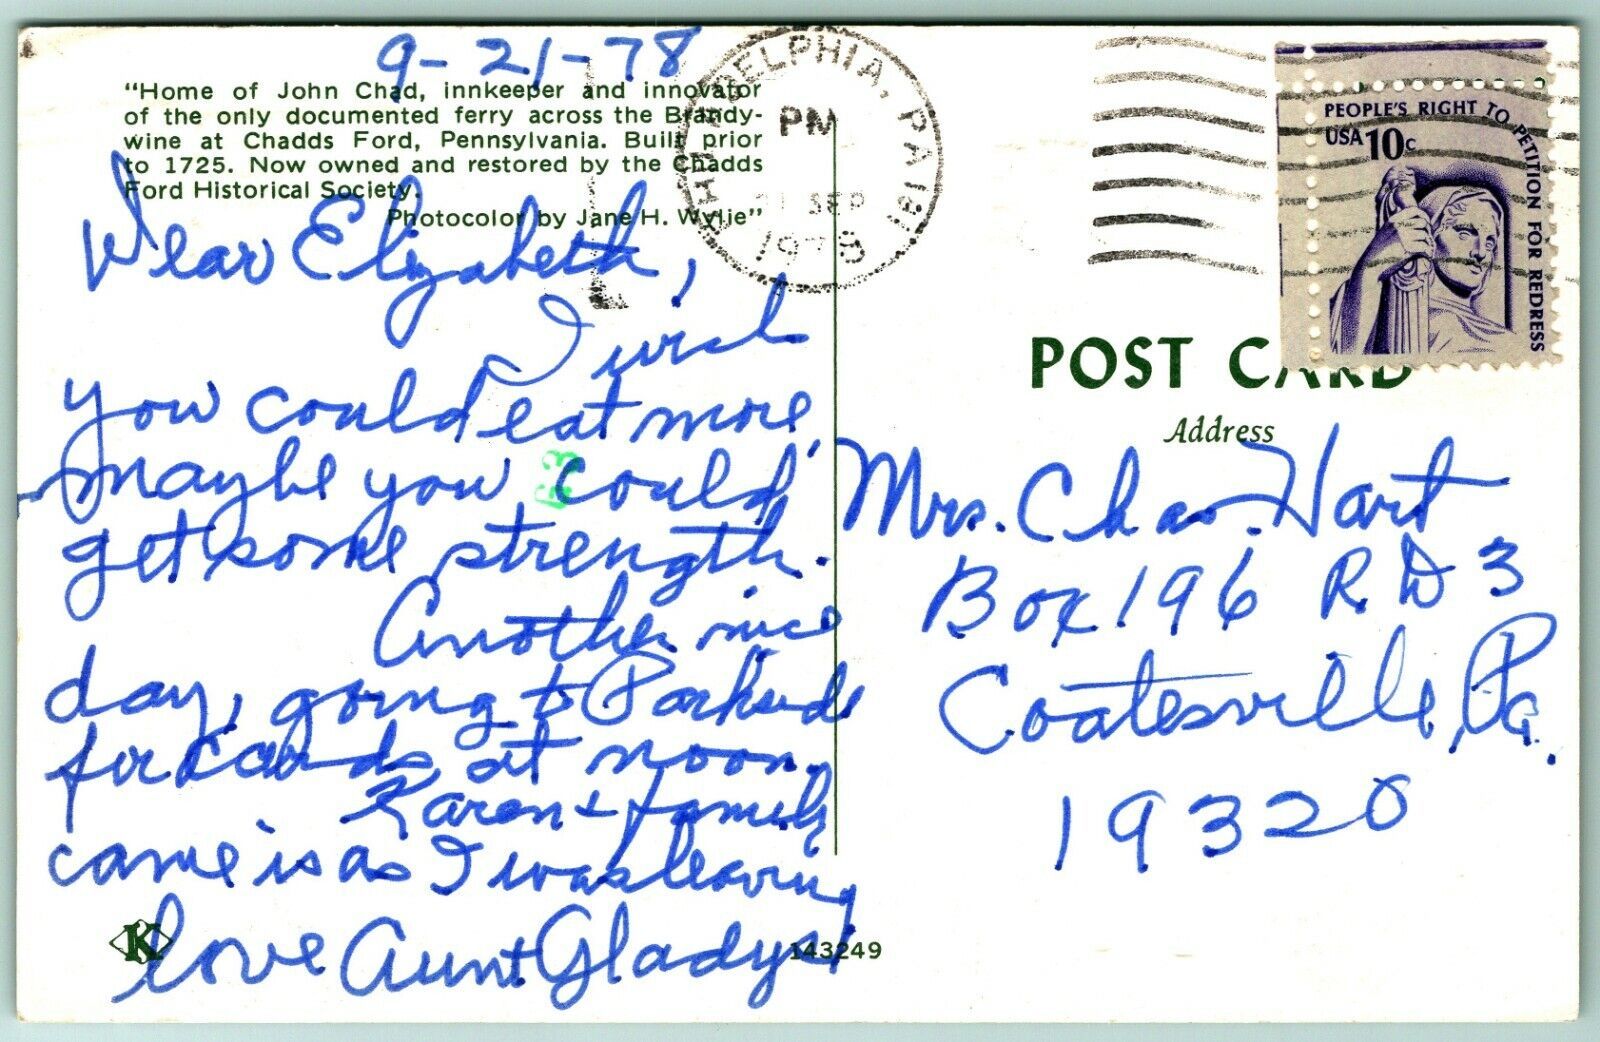 9-21-78
"Home of John Chad, innkeeper and innovator
of the only documented ferry across the Brandy-
wine at Chadds Ford, Pennsylvania. Built prior
to 1725. Now owned and restored by the Chadds
Ford Historical Society.
Photocolor by Jane H. Wylie"
Dear Elizabeth,
I wish
you could eat more
maybe you could
get some strength.
Another nice
day, going to Parkside
for cards at noon.
Karen + family
came is as I was leaving
love Aunt Gladys
K
143249
PHILADELPHIA, PA
PM
21 SEP
1978
PEOPLE'S RIGHT TO PETITION FOR REDRESS
USA 10c
POST CARD
Address
Mrs. Chas. Hart
Box 196 R.D 3
Coatesville, Pa.
19320